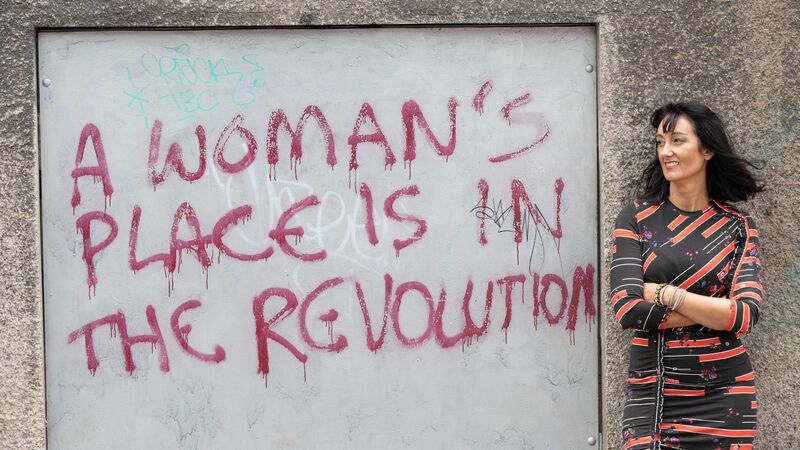 A WOMAN'S
PLACE IS IN
THE REVOLUTION